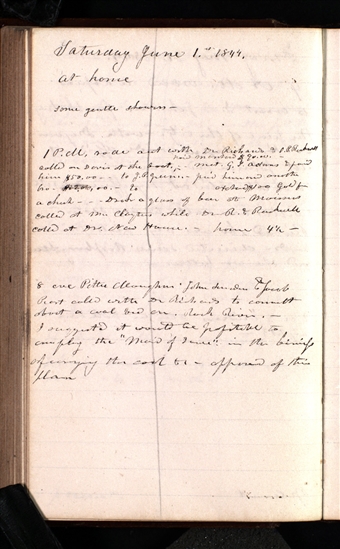 Saturday June 1st 1844.
At home
some gentle showers —
1 P.M. rode out with Dr Richards & O.P. Rockwell
called on Davis at the boat, paid Manhard $90.00
met G. J. Adams & paid
him $50.00 — to J. P. Green paid him on another
a check — Drank a glass of beer at Moessers
called at Mr Claytons while Dr R. & Rockwell
called at Drs. New House. — home 4½ —
8 eve Peltier John &
called with Dr Richards to consult
about a coal bed on Rock River. —
I suggested it would be profitable to
employ the "Maid of Iowa" in the business
of carrying the coal &c — approved of this
plan